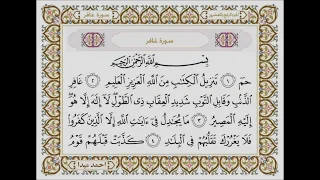 سورة غافر
سورة غافر
بِسْمِ اللَّهِ الرَّحْمَٰنِ الرَّحِيمِ
حمٓ ١ تَنزِيلُ الْكِتَابِ مِنَ اللَّهِ الْعَزِيزِ الْعَلِيمِ ٢ غَافِرِ
الذَّنۢبِ وَقَابِلِ التَّوْبِ شَدِيدِ الْعِقَابِ ذِي الطَّوْلِ لَآ إِلَٰهَ إِلَّا هُوَ
إِلَيْهِ الْمَصِيرُ ٣ مَا يُجَادِلُ فِيٓ ءَايَاتِ اللَّهِ إِلَّا الَّذِينَ كَفَرُوا
فَلَا يَغْرُرْكَ تَقَلُّبُهُمْ فِي الْبِلَادِ ٤ كَذَّبَتْ قَبْلَهُمْ قَوْمُ